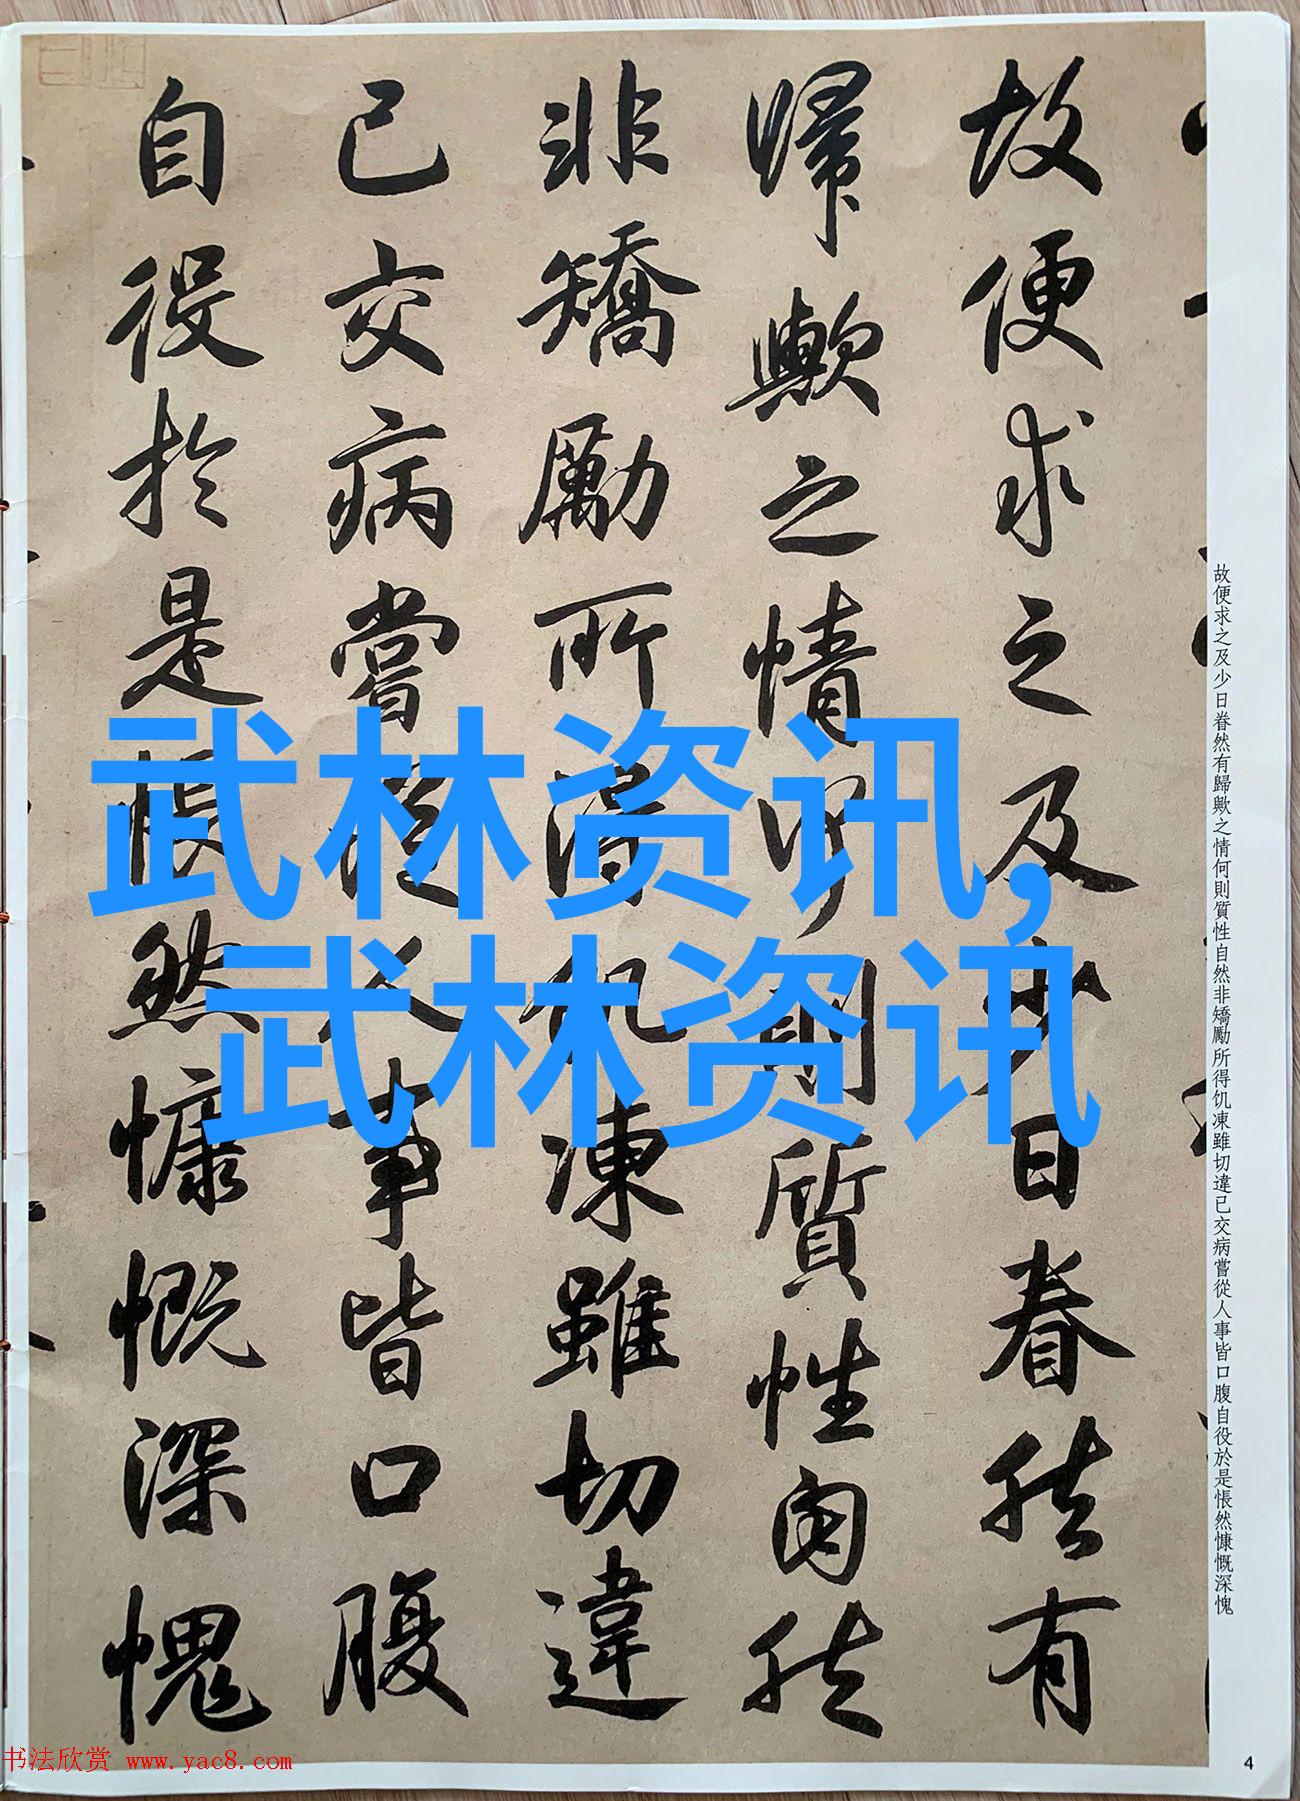 故便求之及少日眷然有歸歟之情何則質性自然非矯勵所得饥凍雖切違已交病嘗從人事皆口腹自役於是悵然慷慨深愧
故便求之及少日眷然有
歸歟之情何則質性自然
非矯勵所得饥凍雖切違
已交病嘗從人事皆口腹
自役於是悵然慷慨深愧
武林资讯,
武林资讯
书法欣赏 www.yac8.com
4